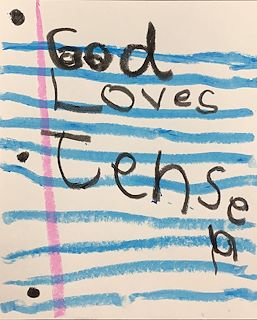 God
Loves
Jense
n